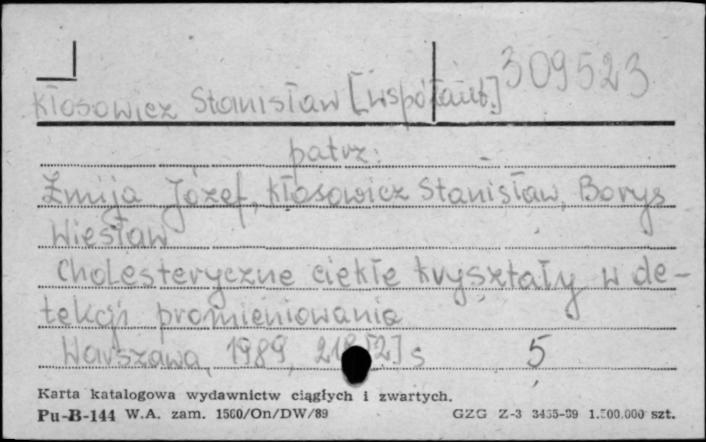 309523
Kłosowicz Stanisław [współaut.]
patrz:
Żmija Józef, Kłosowicz Stanisław, Borys
Wiesław
Cholesteryczne ciekłe kryształy w de-
tekcji promieniowania
Warszawa, 1989, [2] s 5
Karta katalogowa wydawnictw ciągłych i zwartych.
Pu-B-144 W.A. zam. 1500/On/DW/89 GZG Z-3 1.500.000 szt.